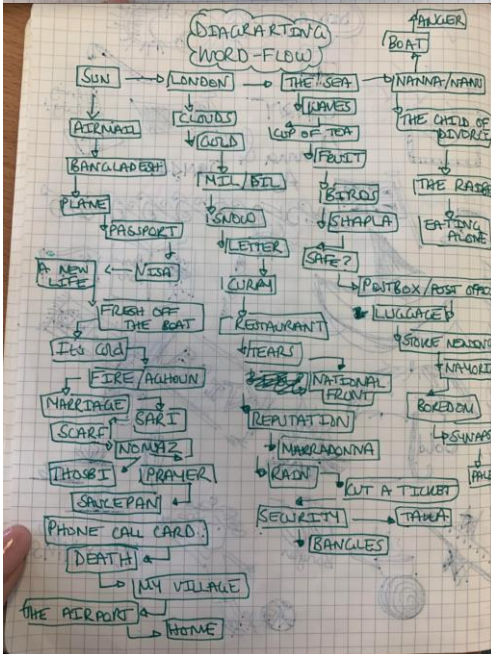 DIAGRARTING
WORD-FLOW
ANGER
BOAT
SUN
LONDON
THE SEA
NANNA/NANU
AIRMAIL
CLOUDS
WAVES
THE CHILD OF
DIVORCE
COLD
CUP OF TEA
BANGLADESH
FRUIT
MIL/BIL
THE RAIN
PLANE
SNOW
BIRDS
SHAPLA
EATING
ALONE
PASSPORT
LETTER
SAFE?
A NEW
LIFE
VISA
CURRY
POSTBOX/POST OFFI
LUGGAGE
FRESH OFF
THE BOAT
RESTAURANT
STORE
Its Cold
TEARS
NAYORI
FIRE/AGHOUN
NATIONAL
FRONT
BOREDOM
MARRIAGE
SARI
REPUTATION
SYNAPS
SCARF
NOMAZ
MARRADONNA
THOSBI
PRAYER
RAIN
CUT A TICKET
SAUCEPAN
SECURITY
TAKA
PHONE CALL CARD
BANGLES
DEATH
MY VILLAGE
THE AIRPORT
HOME